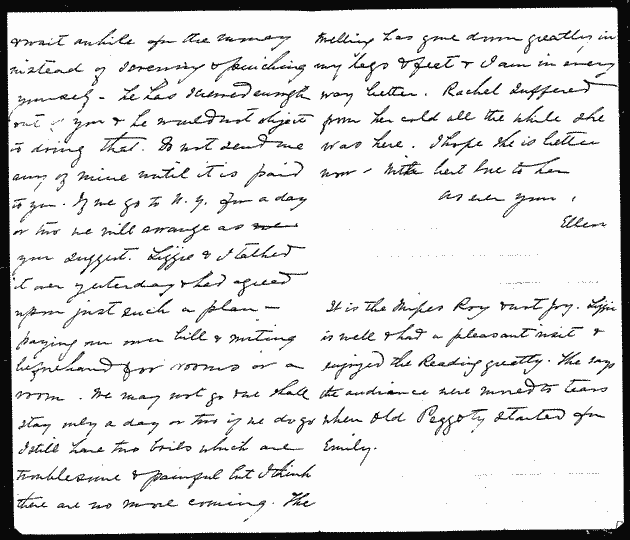 & wait awhile for the money
instead of screwing & pinching
yourself - he has screwed enough
out of you & he would not object
to doing that. Do not send me
any of mine until it is paid
to you. If we go to N. Y. for a day
or two we will arrange as
you suggest. Lizzie & I talked
it over yesterday & had agreed
upon just such a plan -
paying our own bill & writing
beforehand for rooms or a
room. We may not go & we shall
stay only a day or two if we do go
I still have two boils which are
troublesome & painful but I think
there are no more coming. The
swelling has gone down greatly in
my legs & feet & I am in every
way better. Rachel suffered
from her cold all the while she
was here. I hope she is better
now - With best love to her
as ever yours,
Ellen
It is the Misses Roy & not Joy. Lizzie
is well & had a pleasant visit &
enjoyed the Reading greatly. She says
the audience were moved to tears
when Old Peggoty started for
Emily.